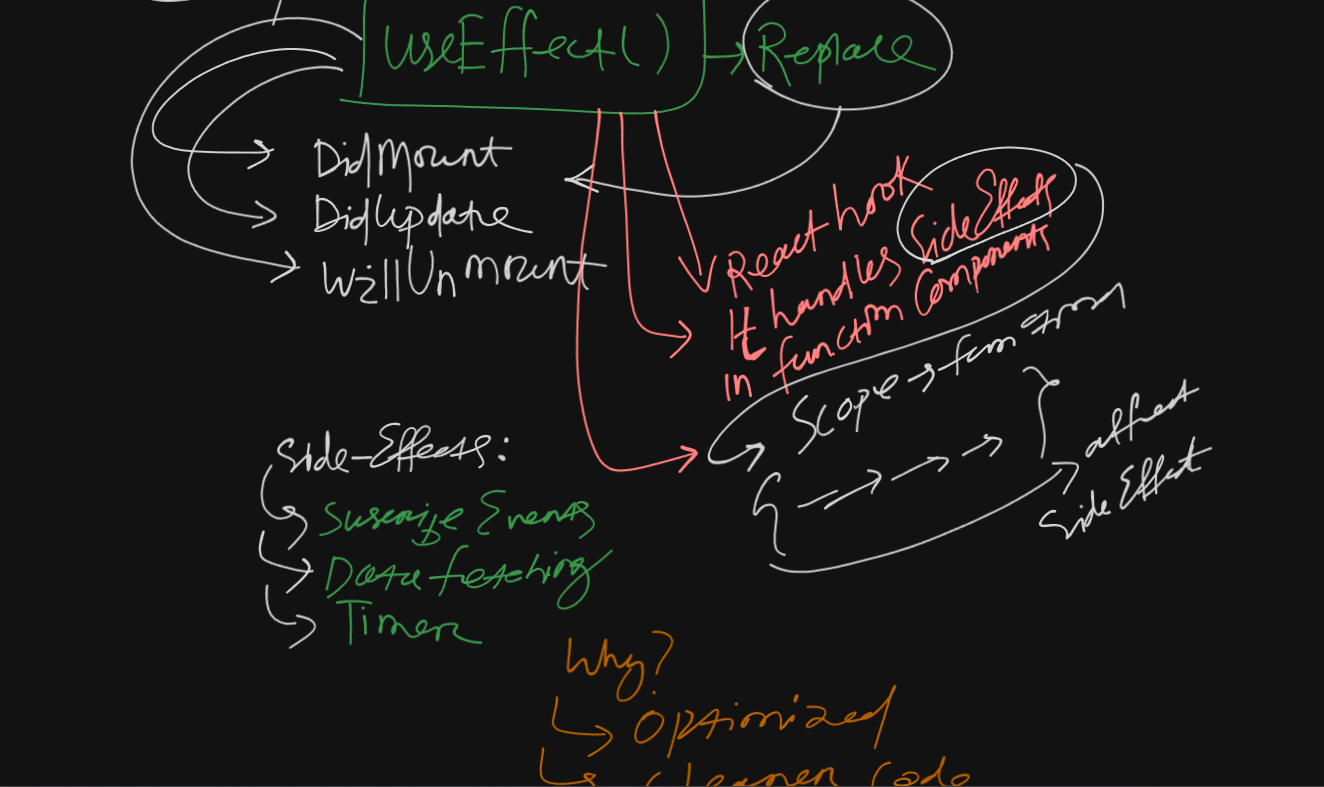 UseEffect() → Replace
DidMount
DidUpdate
WillUnmount
React hook
It handles SideEffects
in function Components
Scope → function
affect
Side Effect
Side-Effects:
Events
Data fetching
Timer
Why?
Optimized
Cleaner Code